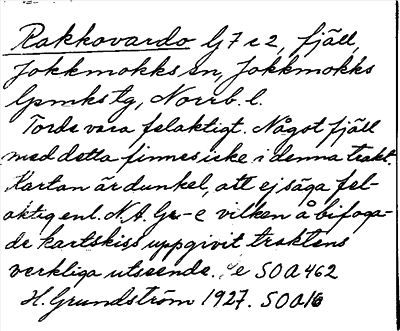 Rakkovardo G7 e 2, fjäll,
Jokkmokks sn, Jokkmokks
lpmkstg, Norrb. l.
Torde vara felaktigt. Något fjäll
med detta finnes icke i denna trakt.
Kartan är dunkel, att ej säga fel-
aktig enl. N. A. Gr-e vilken å bifoga-
de kartskiss uppgivit traktens
verkliga utseende. Se SOA 462
H. Grundström 1927. SOA 16